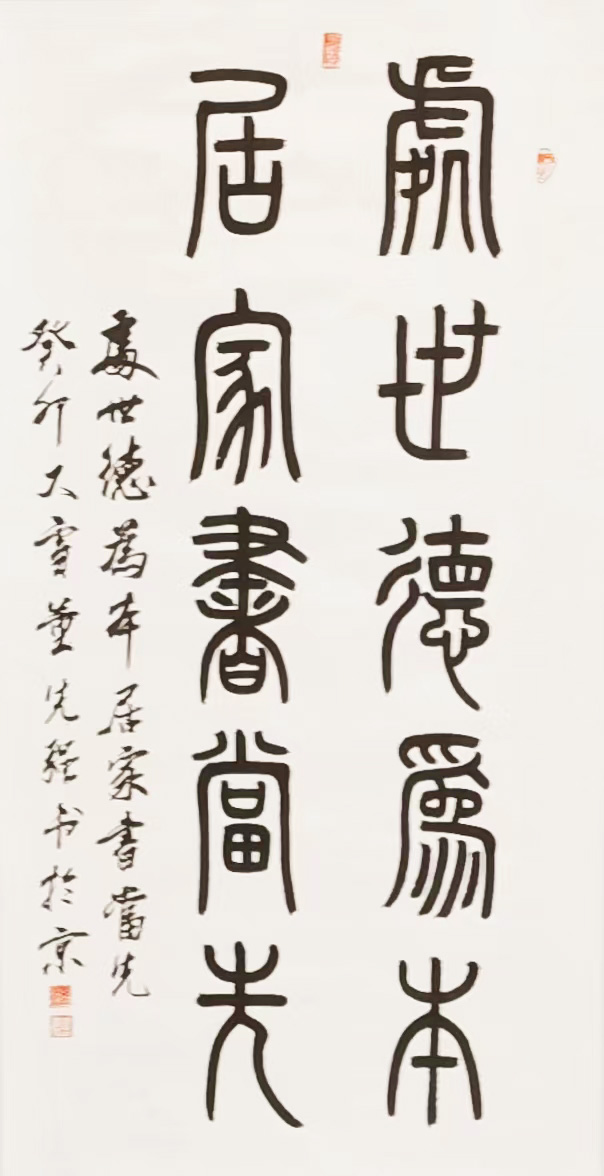 處世德爲本
居家書當先
處世德為本居家書當先
癸卯大雪董先强书於京